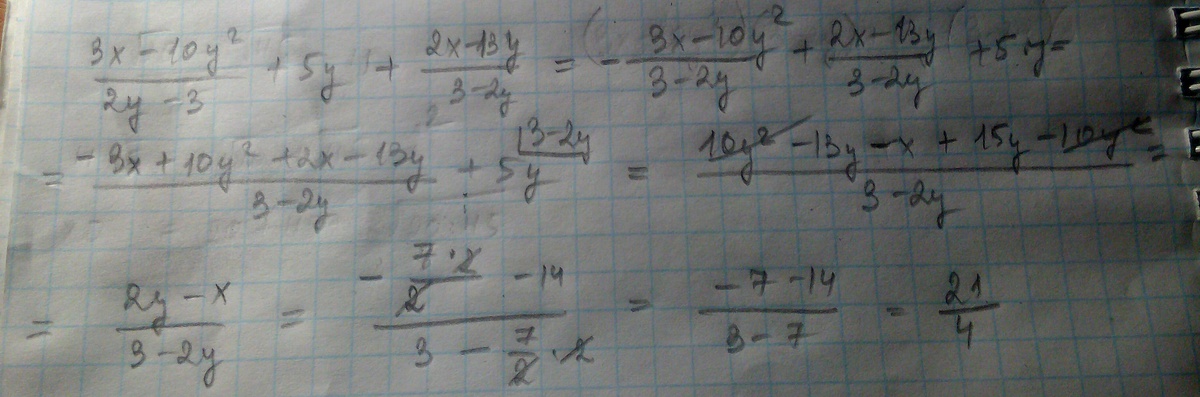 (3x - 10y²)/(2y - 3) + 5y + (2x - 13y)/(3 - 2y) = - (3x - 10y²)/(3 - 2y) + (2x - 13y)/(3 - 2y) + 5y =
= (-3x + 10y² + 2x - 13y)/(3 - 2y) + 5y ⌊3 - 2y = (10y² - 13y - x + 15y - 10y²)/(3 - 2y) =
= (2y - x)/(3 - 2y) = (- (7·2)/2 - 14)/(3 - 7/2 · 2) = (-7 - 14)/(3 - 7) = 21/4